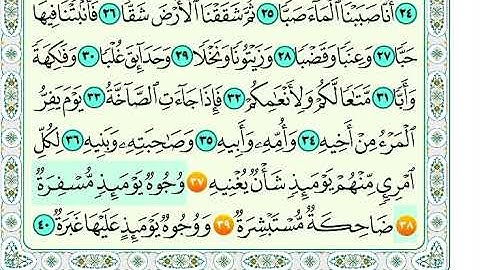 ٢٤ أَنَّا صَبَبْنَا ٱلْمَآءَ صَبًّا ٢٥ ثُمَّ شَقَقْنَا ٱلْأَرْضَ شَقًّا ٢٦ فَأَنۢبَتْنَا فِيهَا
حَبًّا ٢٧ وَعِنَبًا وَقَضْبًا ٢٨ وَزَيْتُونًا وَنَخْلًا ٢٩ وَحَدَآئِقَ غُلْبًا ٣٠ وَفَٰكِهَةً
وَأَبًّا ٣١ مَّتَٰعًا لَّكُمْ وَلِأَنْعَٰمِكُمْ ٣٢ فَإِذَا جَآءَتِ ٱلصَّآخَّةُ ٣٣ يَوْمَ يَفِرُّ
ٱلْمَرْءُ مِنْ أَخِيهِ ٣٤ وَأُمِّهِۦ وَأَبِيهِ ٣٥ وَصَٰحِبَتِهِۦ وَبَنِيهِ ٣٦ لِكُلِّ
ٱمْرِئٍ مِّنْهُمْ يَوْمَئِذٍ شَأْنٌ يُغْنِيهِ ٣٧ وُجُوهٌ يَوْمَئِذٍ مُّسْفِرَةٌ
٣٨ ضَاحِكَةٌ مُّسْتَبْشِرَةٌ ٣٩ وَوُجُوهٌ يَوْمَئِذٍ عَلَيْهَا غَبَرَةٌ ٤٠